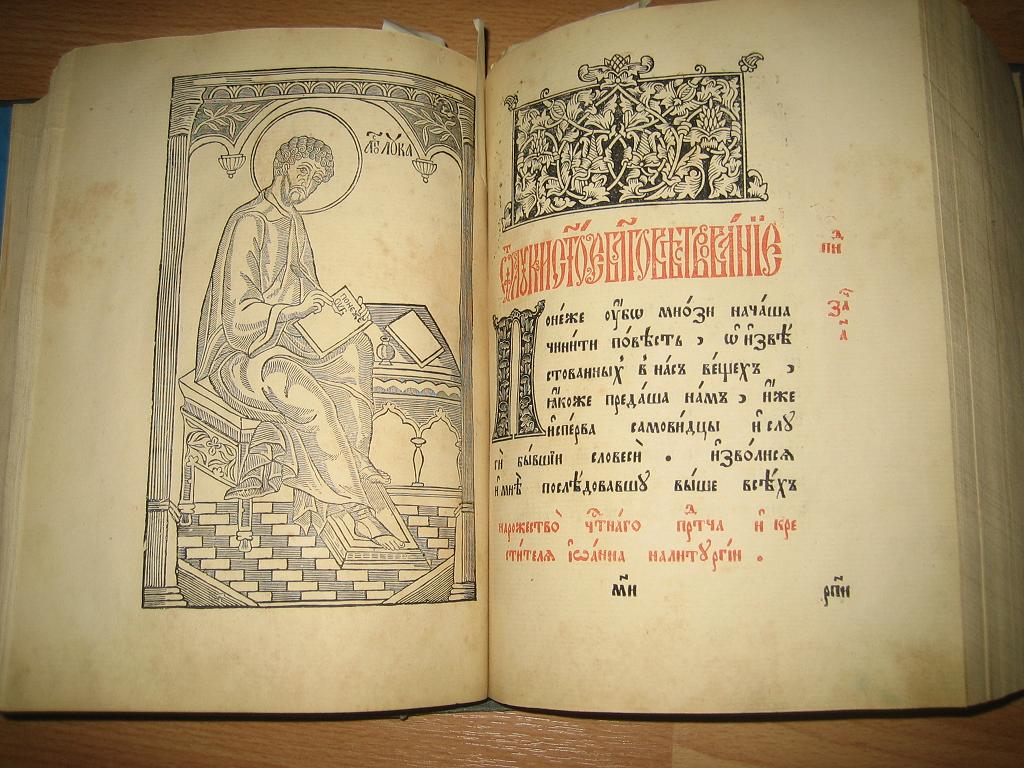 А҆ГЇ ЛꙊКА
ПОНЕЖЕ ОУ҆БО
Ѿ ЛꙊКИ СТ҃ОЕ БЛАГОВѢСТВОВАНЇЕ
Понеже ᲂу҆́бѡ мно́ѕи нача́ша
чини́ти по́вѣсть , ѡ҆ и҆звѣ́
стованныхꙋ в на́съ ве́щехъ ,
ꙗ҆́коже преда́ша на́мъ , и҆̀же
и҆спе́рва самови́дцы и҆ слꙋ
ги̑ бы́вшїи словесѝ . и҆зво́лисѧ
и҆ мнѣ̀ послѣ́довавшꙋ вы́ше всѣ́хъ
на рожество̀ чт҃на́го пр҃тча и҆ кре
сти́телѧ і҆ѡа́нна на литꙋргі́и .
пн д
за҄
а҃
м҃и
рп҃и